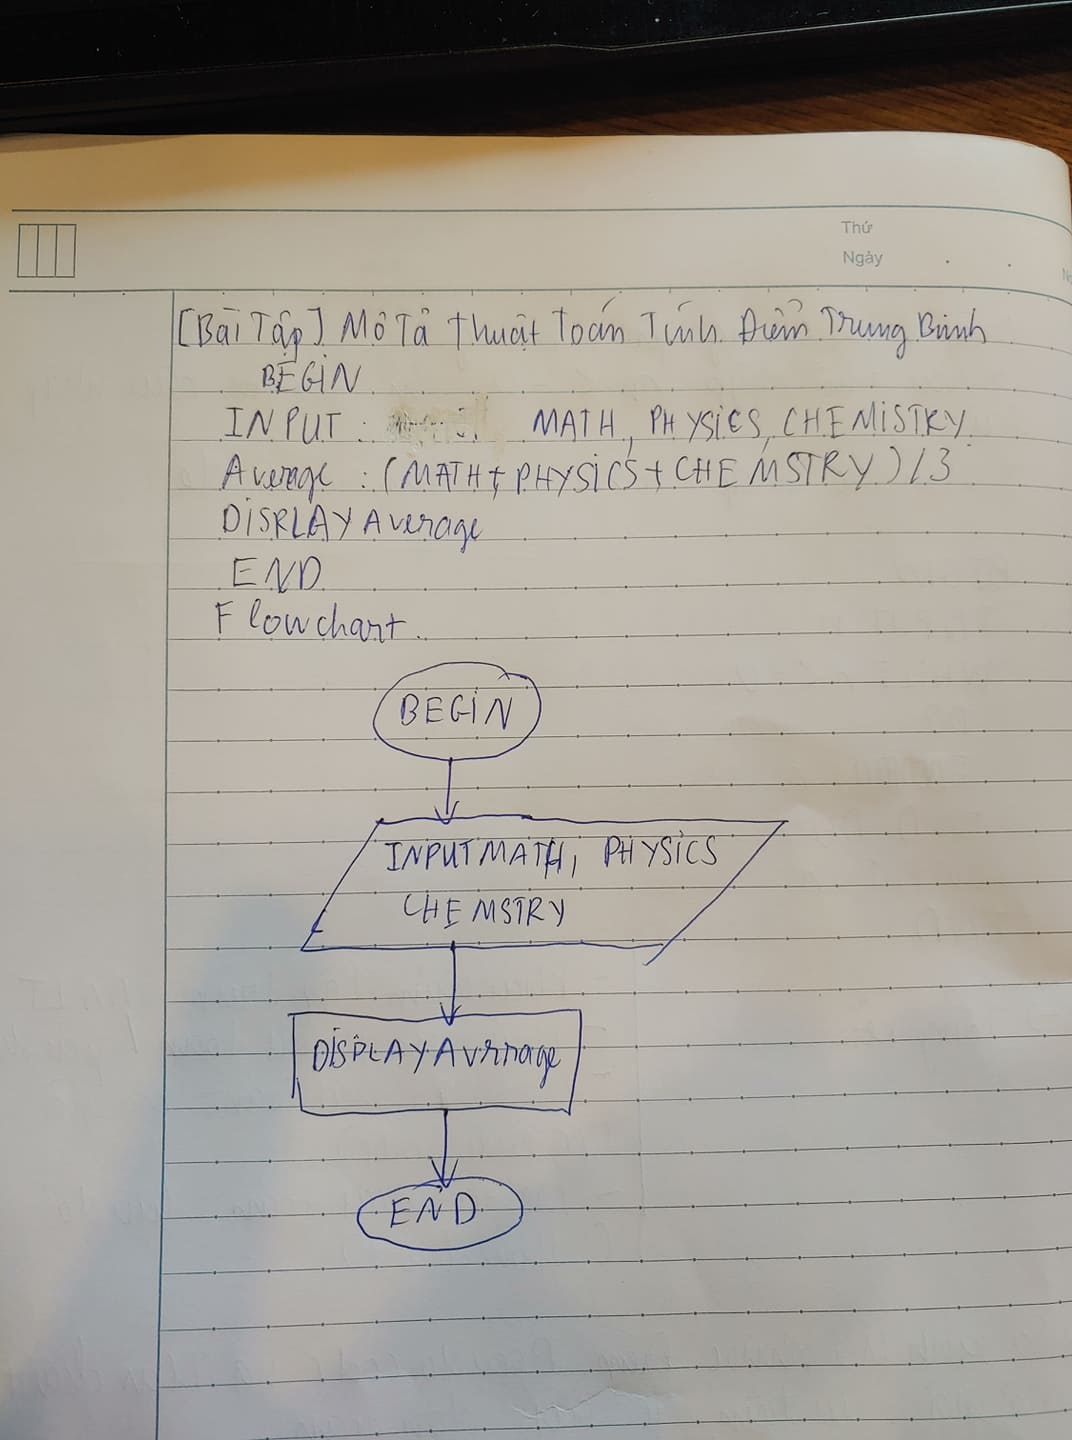 Thứ
Ngày
[Bài Tập] Mô Tả Thuật Toán Tính Điểm Trung Bình
BEGIN
INPUT : MATH, PHYSICS, CHEMISTRY
Average : (MATH + PHYSICS + CHEMSTRY) / 3
DISPLAY Average
END
Flowchart.
BEGIN
INPUT MATH, PHYSICS
CHEMSTRY
DISPLAY Avrrage
END